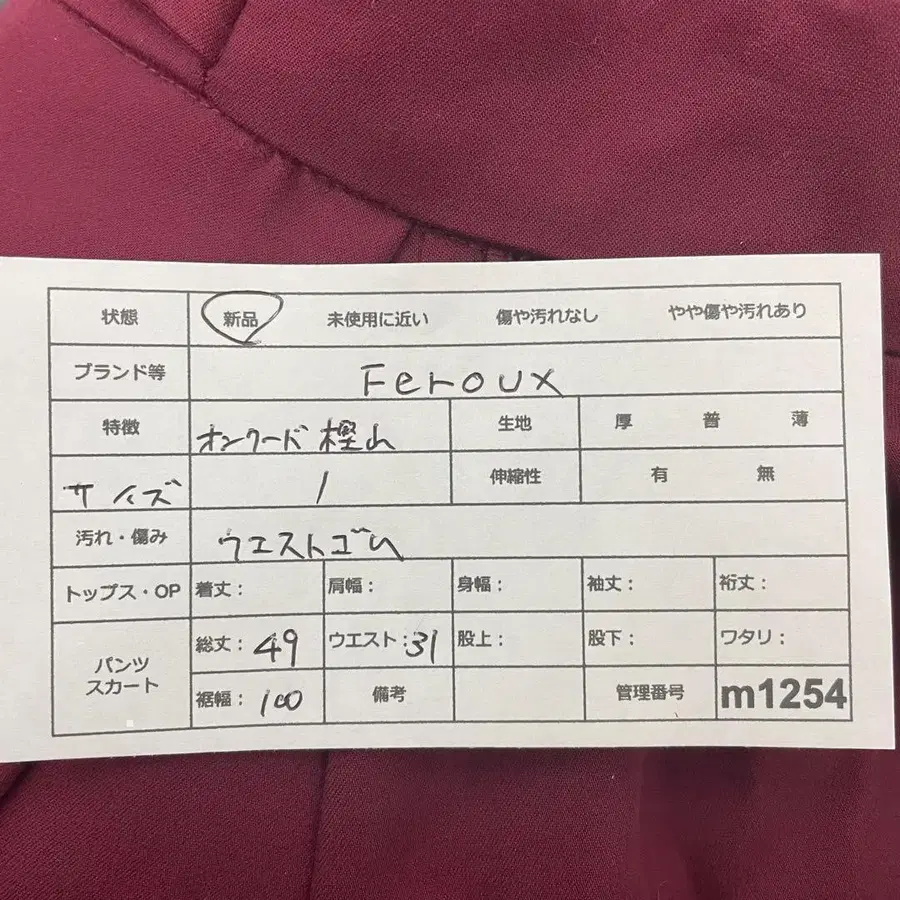 状態 新品 未使用に近い 傷や汚れなし やや傷や汚れあり
ブランド等 Feroux
特徴 オンワード樫山 生地 厚 普 薄
サイズ 1 伸縮性 有 無
汚れ・傷み ウエストゴム
トップス・OP 着丈: 肩幅: 身幅: 袖丈: 裄丈:
パンツ スカート 総丈: 49 ウエスト: 31 股上: 股下: ワタリ:
裾幅: 100 備考 管理番号 m1254